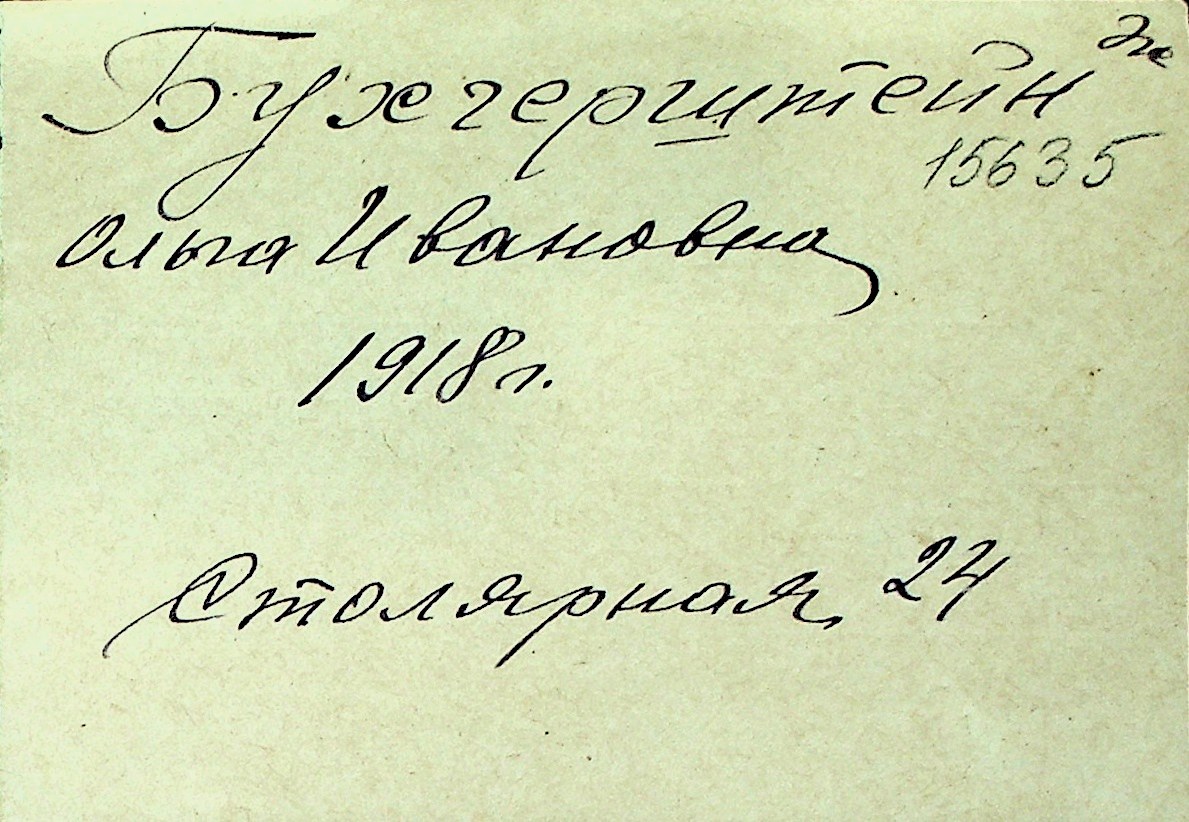 Бухгерштейн
15635
Ольга Ивановна
1918 г.
Столярная, 24